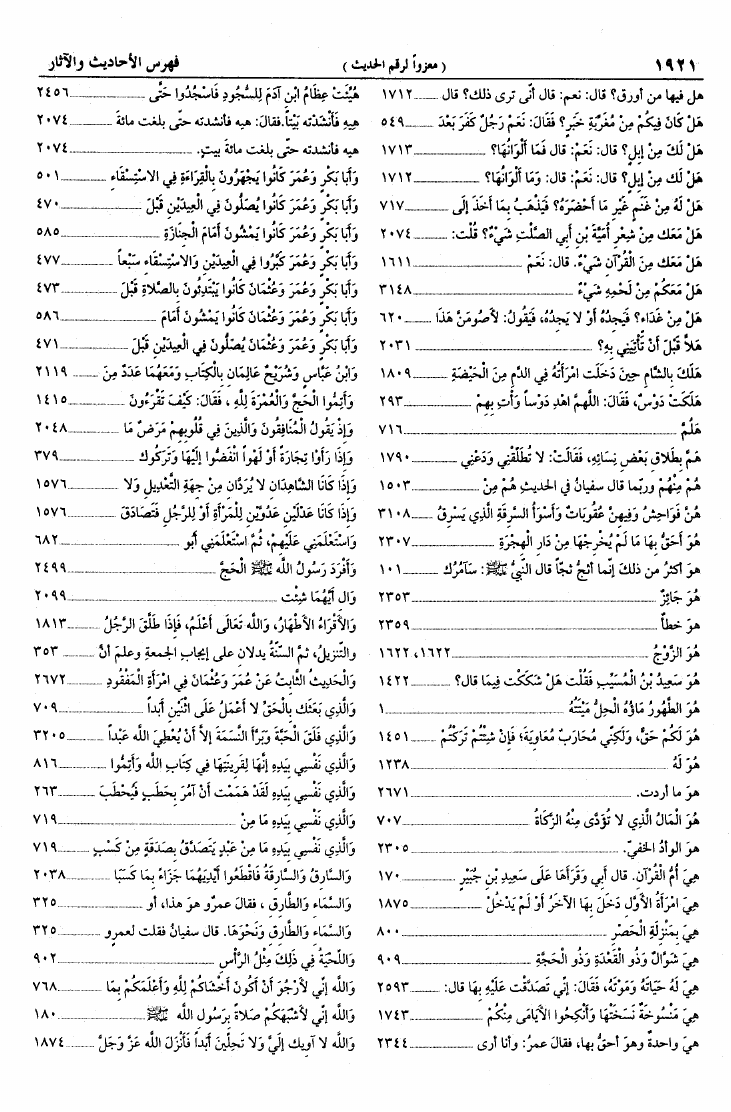 ١٩٢١
( معزواً لرقم الحديث )
فهرس الأحاديث والآثار
هل فيها من أورق؟ قال: نعم: قال أنى ترى ذلك؟ قال ١٧١٢
هَلْ كَانَ فِيكُمْ مِنْ مُغَرِّبَةِ خَبَرٍ؟ فَقَالَ: نَعَمْ رَجُلٌ كَفَرَ بَعْدَ ٥٤٩
هَلْ لَكَ مِنْ إبِلٍ؟ قال: نَعَمْ: قال فَمَا أَلْوَانُهَا؟ ١٧١٣
هَلْ لَك مِنْ إِبِلٍ؟ قال: نَعَمْ: قال: وَمَا أَلْوَانُهَا؟ ١٧١٢
هَلْ لَهُ مِنْ غَنَمٍ غَيْرِ مَا أَحْضَرَهُ؟ فَيَذْهَبُ بِمَا أَخَذَ إلَى ٧١٧
هَلْ مَعَك مِنْ شِعْرِ أُمَيَّةَ بْنِ أَبِي الصَّلْتِ شَيْءٌ؟ قُلْت: ٢٠٧٤
هَلْ مَعَك مِنَ الْقُرْآنِ شَيْءٌ. قال: نَعَمْ ١٦١١
هَلْ مَعَكُمْ مِنْ لَحْمِهِ شَيْءٌ ٣١٤٨
هَلْ مِنْ غَدَاءٍ؟ فَيَجِدُهُ أَوْ لا يَجِدُهُ، فَيَقُولُ: لأَصُومَنَّ هَذَا ٦٢٠
هَلاَّ قَبْلَ أَنْ تَأْتِيَنِي بِهِ؟ ٢٠٣١
هَلَكَ بِالشَّامِ حِينَ دَخَلَت امْرَأَتُهُ فِي الدَّمِ مِنَ الْحَيْضَةِ ١٨٠٩
هَلَكَتْ دَوْسٌ، فَقَالَ: اللَّهمَّ اهْدِ دَوْساً وَأْتِ بِهِمْ ٢٩٣
هَلُمَّ ٧١٦
هَمَّ بِطَلاقِ بَعْضِ نِسَائِهِ، فَقَالَتْ: لا تُطَلِّقْنِي وَدَعْنِي ١٧٩٠
هُمْ مِنْهُمْ وربّما قال سفيان في الحديثِ هُمْ مِنْ ١٥٠٣
هُنَّ فَوَاحِشُ وَفِيهِنَّ عُقُوبَاتٌ وَأَسْوَأُ السَّرِقَةِ الَّذِي يَسْرِقُ ٣١٠٨
هُوَ أَحَقُّ بِهَا مَا لَمْ يُخْرِجْهَا مِنْ دَارِ الْهِجْرَةِ ٢٣٠٧
هو أكثرُ من ذلكَ إنّما أثجُّ ثجّاً قال النّبيُّ ﷺ: سَآمُرُك ١٠١
هُوَ جَائِزٌ ٢٣٥٣
هو خطأ ٢٣٥٩
هُوَ الزَّوْجُ ١٦٢٢، ١٦٢٢
هُوَ سَعِيدُ بْنُ الْمُسَيِّبِ فَقُلْت هَلْ شَكَكْت فِيمَا قال؟ ١٤٢٢
هُوَ الطَّهُورُ مَاؤُهُ الْحِلُّ مَيْتَتُهُ ١
هُوَ لَكُمْ حَقٌّ، وَلَكِنِّي مُحَارَبٌ مُعَاوِيَةَ؛ فَإِنْ شِئْتُمْ تَرَكْتُمْ ١٤٥١
هُوَ لَهُ ١٢٣٨
هوَ ما أردت. ٢٦٧١
هُوَ الْمَالُ الَّذِي لا تُؤَدَّى مِنْهُ الزَّكَاةُ ٧٠٧
هوَ الوأدُ الخفيّ. ٢٣٠٥
هِيَ أُمُّ الْقُرْآنِ. قال أَبِي وَقَرَأَهَا عَلَى سَعِيدِ بْنِ جُبَيْرٍ ١٧٠
هِيَ امْرَأَةُ الأَوَّلِ دَخَلَ بِهَا الآخَرُ أَوْ لَمْ يَدْخُلْ ١٨٧٥
هِيَ بِمَنْزِلَةِ الْحَصْرِ ٨٠٠
هِيَ شَوَّالٌ وَذُو الْقَعْدَةِ وَذُو الْحَجَّةِ ٩٠٩
هِيَ لَهُ حَيَاتَهُ وَمَوْتَهُ، فَقَالَ: إنِّي تَصَدَّقْت عَلَيْهِ بِهَا قال: ٢٥٩٣
هِيَ مَنْسُوخَةٌ نَسَخَتْهَا وَأَنْكِحُوا الأَيَامَى مِنْكُمْ ١٧٤٣
هيَ واحدةٌ وهوَ أحقُّ بها، فقالَ عمرُ: وأنا أرى ٢٣٤٤
هُيِّئَتْ عِظَامُ ابْنِ آدَمَ لِلسُّجُودِ فَاسْجُدُوا حَتَّى ٢٤٥٦
هِيهِ فَأَنْشَدْته بَيْتاً.فقالَ: هيه فأنشدته حتّى بلغت مائةَ ٢٠٧٤
هيه فأنشدته حتّى بلغت مائةَ بيتٍ. ٢٠٧٤
وَأَبَا بَكْرٍ وَعُمَرَ كَانُوا يَجْهَرُونَ بِالْقِرَاءَةِ فِي الاسْتِسْقَاءِ ٥٠١
وَأَبَا بَكْرٍ وَعُمَرَ كَانُوا يُصَلُّونَ فِي الْعِيدَيْنِ قَبْلَ ٤٧٠
وَأَبَا بَكْرٍ وَعُمَرَ كَانُوا يَمْشُونَ أَمَامَ الْجِنَازَةِ ٥٨٥
وَأَبَا بَكْرٍ وَعُمَرَ كَبَّرُوا فِي الْعِيدَيْنِ وَالاسْتِسْقَاءِ سَبْعاً ٤٧٧
وَأَبَا بَكْرٍ وَعُمَرَ وَعُثْمَانَ كَانُوا يَبْتَدِئُونَ بِالصَّلاةِ قَبْلَ ٤٧٣
وَأَبَا بَكْرٍ وَعُمَرَ وَعُثْمَانَ كَانُوا يَمْشُونَ أَمَامَ ٥٨٦
وَأَبَا بَكْرٍ وَعُمَرَ وَعُثْمَانَ يُصَلُّونَ فِي الْعِيدَيْنِ قَبْلَ ٤٧١
وَابْنُ عَبَّاسٍ وَشُرَيْحٌ عَالِمَانِ بِالْكِتَابِ وَمَعَهُمَا عَدَدٌ مِنَ ٢١١٩
وَأَتِمُّوا الْحَجَّ وَالْعُمْرَةَ لِلَّهِ ، فَقَالَ: كَيْفَ تَقْرَءُونَ ١٤١٥
وَإِذْ يَقُولُ الْمُنَافِقُونَ وَالَّذِينَ فِي قُلُوبِهِمْ مَرَضٌ مَا ٢٠٤٨
وَإِذَا رَأَوْا تِجَارَةً أَوْ لَهْواً انْفَضُّوا إلَيْهَا وَتَرَكُوك ٣٧٩
وَإِذَا كَانَا الشَّاهِدَانِ لا يُرَدَّانِ مِنْ جِهَةِ التَّعْدِيلِ وَلا ١٥٧٦
وَإِذَا كَانَا عَدْلَيْنِ عَدُوَّيْنِ لِلْمَرْأَةِ أَوْ لِلرَّجُلِ فَتَصَادَقَ ١٥٧٦
وَاسْتَعْلَمَنِي عَلَيْهِمْ، ثُمَّ اسْتَعْلَمَنِي أَبُو ٦٨٢
وَأَفْرَدَ رَسُولُ اللَّهِ ﷺ الْحَجَّ ٢٤٩٩
وَال أَيُّهُمَا شِئْت ٢٠٩٩
وَالأَقْرَاءُ الأَطْهَارُ، وَاللَّه تَعَالَى أَعْلَمُ، فَإِذَا طَلَّقَ الرَّجُلُ ١٨١٣
والتّنزيل، ثمّ السّنّةُ يدلان على إيجابِ الجمعةِ وعلمَ أنَّ ٣٥٣
وَالْحَدِيثُ الثَّابِتُ عَنْ عُمَرَ وَعُثْمَانَ فِي امْرَأَةِ الْمَفْقُودِ ٢٦٧٢
وَالَّذِي بَعَثَكَ بِالْحَقِّ لا أَعْمَلُ عَلَى اثْنَيْنِ أَبَداً ٧٠٩
وَالَّذِي فَلَقَ الْحَبَّةَ وَبَرَأَ النَّسَمَةَ إلاَّ أَنْ يُعْطِيَ اللَّه عَبْداً ٣٢٠٥
وَالَّذِي نَفْسِي بِيَدِهِ إنَّهَا لِقَرِينَتِهَا فِي كِتَابِ اللَّه وَأَتِمُّوا ٨١٦
وَالَّذِي نَفْسِي بِيَدِهِ لَقَدْ هَمَمْت أَنْ آمُرَ بِحَطَبٍ فَيُحْطَبَ ٢٦٣
وَالَّذِي نَفْسِي بِيَدِهِ مَا مِنْ ٧١٩
وَالَّذِي نَفْسِي بِيَدِهِ مَا مِنْ عَبْدٍ يَتَصَدَّقُ بِصَدَقَةٍ مِنْ كَسْبٍ ٧١٩
وَالسَّارِقُ وَالسَّارِقَةُ فَاقْطَعُوا أَيْدِيَهُمَا جَزَاءً بِمَا كَسَبَا ٢٠٣٨
وَالسَّمَاءِ وَالطَّارِقِ ، فقالَ عمرٌو هوَ هذا، أو ٣٢٥
وَالسَّمَاءِ وَالطَّارِقِ وَنَحْوَهَا. قال سفيان فقلت لعمرٍو ٣٢٥
وَاللِّحْيَةُ فِي ذَلِكَ مِثْلُ الرَّأْسِ ٩٠٢
وَاللَّهِ إنِّي لأَرْجُوَ أَنْ أَكُونَ أَخْشَاكُمْ لِلَّهِ وَأَعْلَمَكُمْ بِمَا ٧٦٨
وَاللَّه إنِّي لأَشْبَهُكُمْ صَلاةً بِرَسُولِ اللَّه ﷺ ١٨٠
وَاللَّه لا آوِيك إلَيَّ وَلا تَحِلِّينَ أَبَداً فَأَنْزَلَ اللَّه عَزَّ وَجَلَّ ١٨٧٤